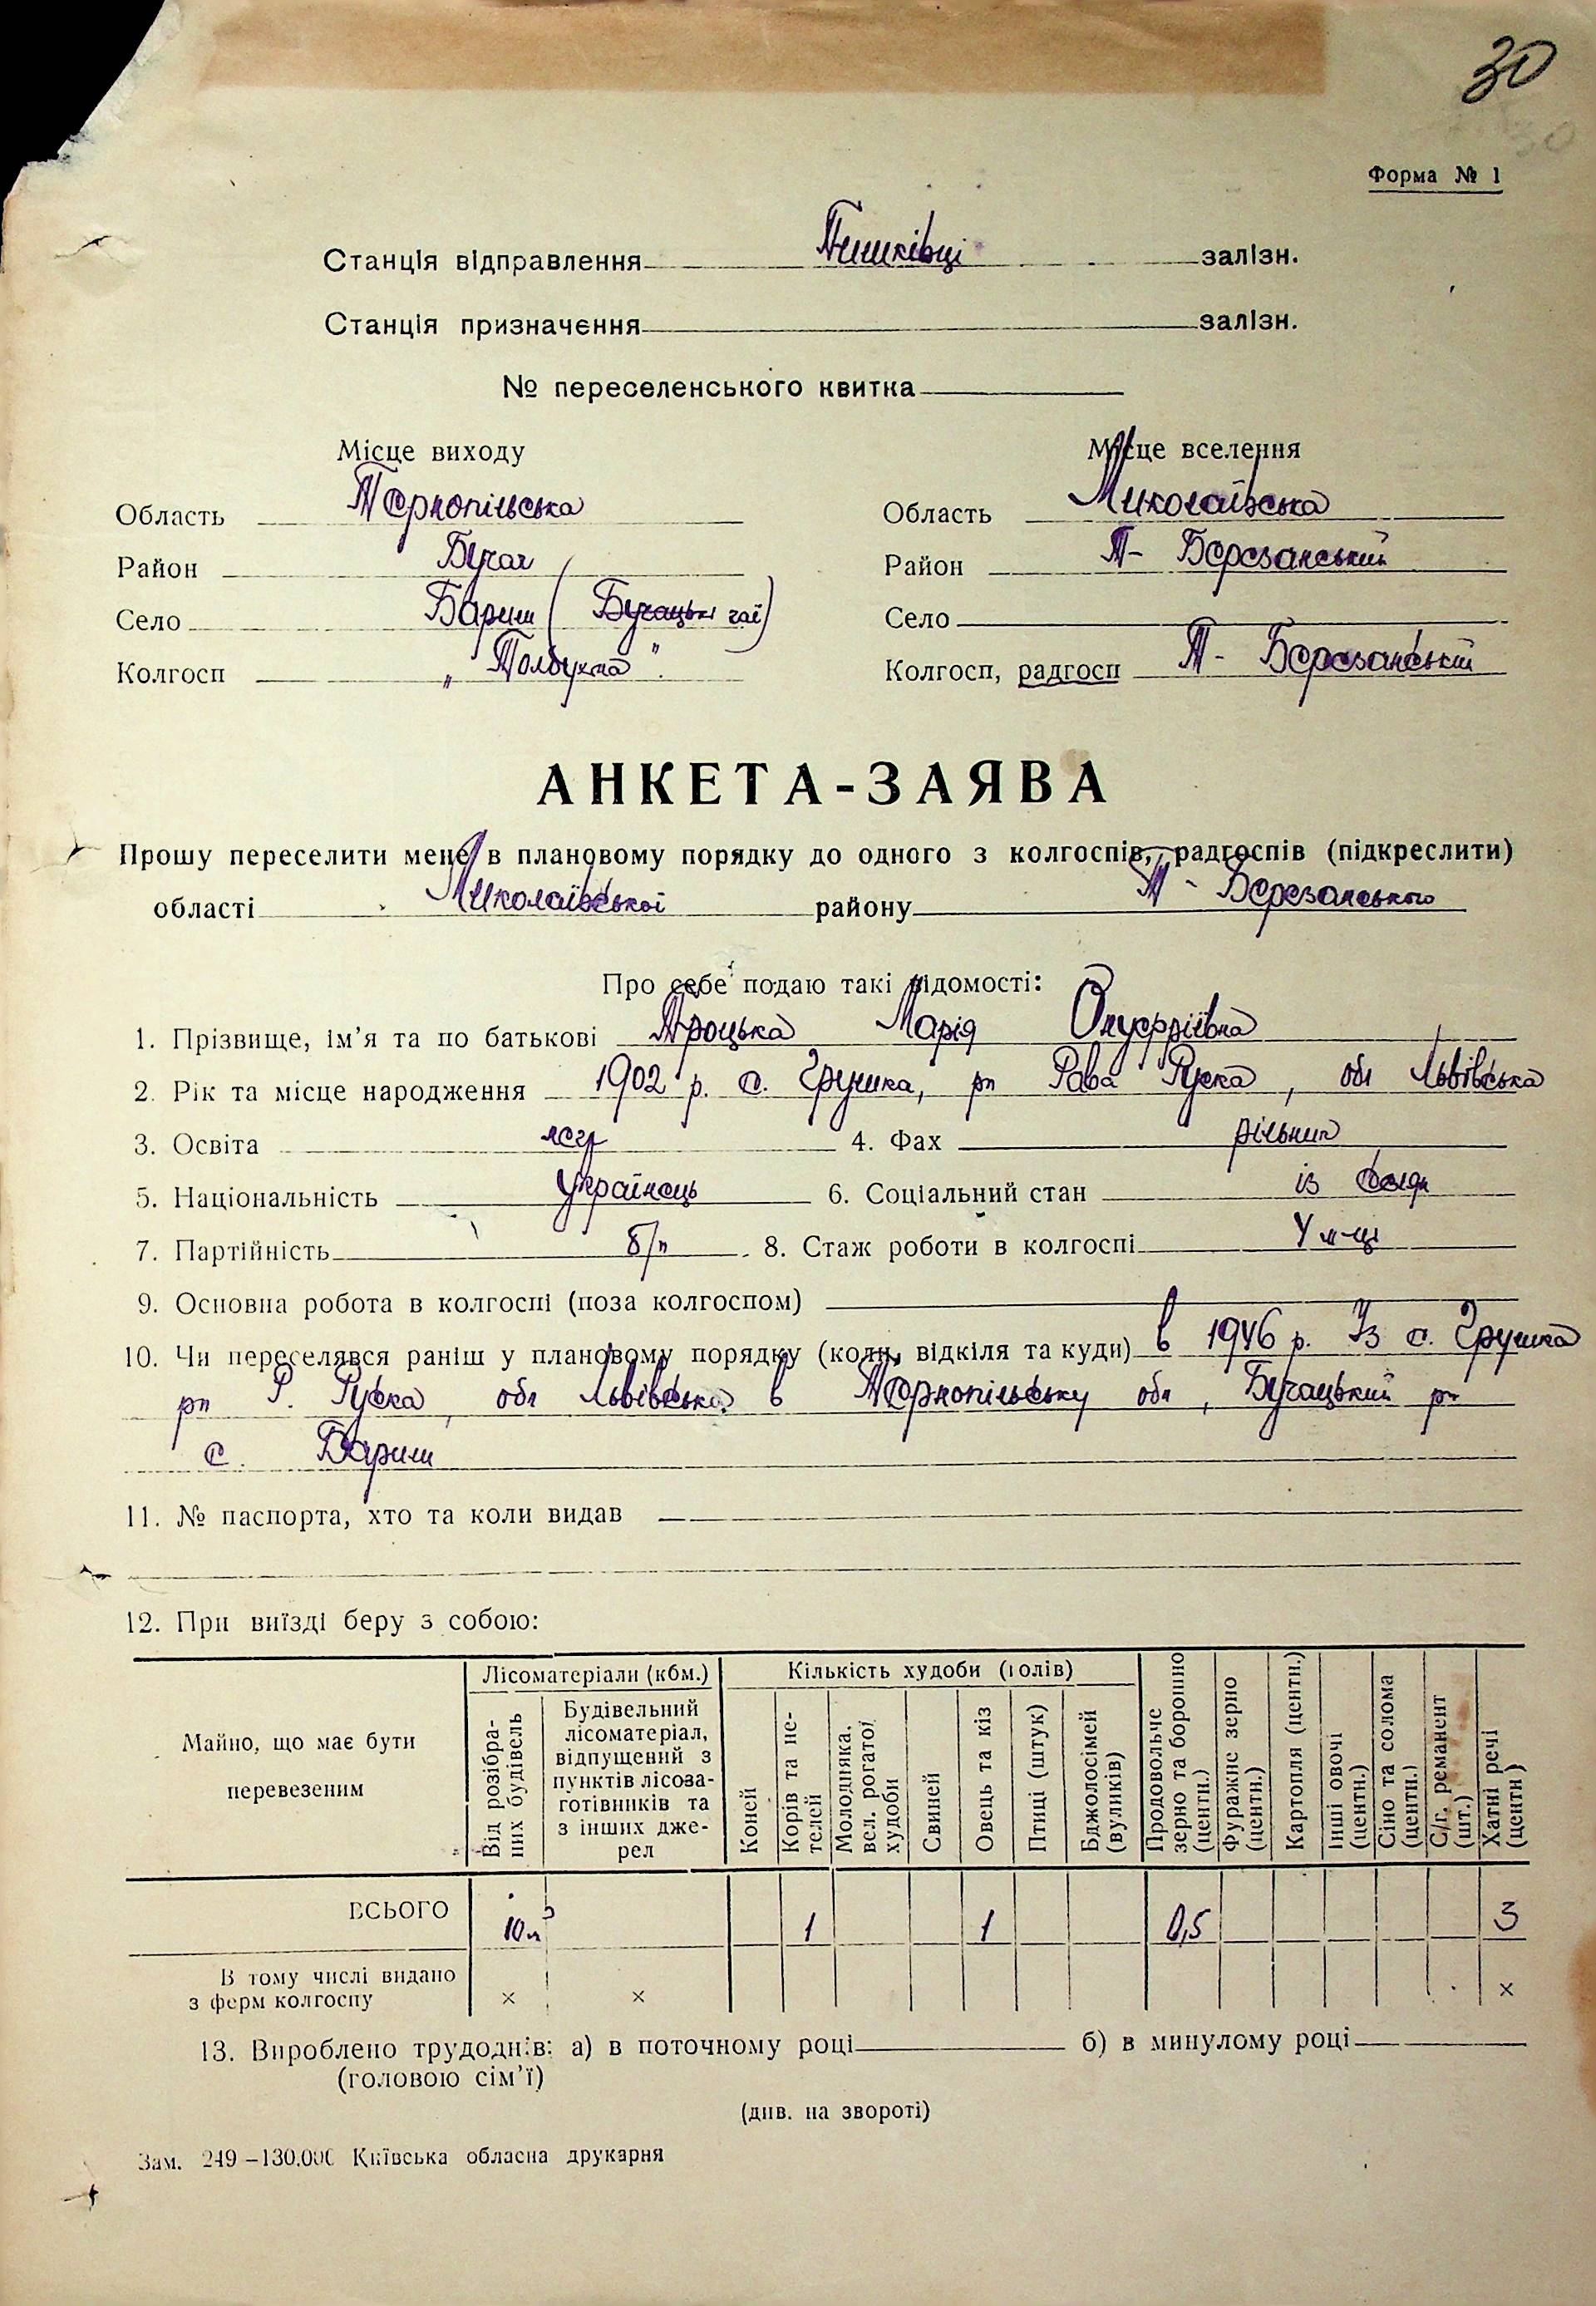 30
Форма № 1
Станція відправлення Пишківці залізн.
Станція призначення залізн.
№ переселенського квитка
Місце виходу Місце вселення
Область Тернопільська Область Миколаївська
Район Бучач Район Т- Березанський
Село Бариш (Бучацькі гаї) Село
Колгосп „Толбухіна". Колгосп, радгосп Т- Березанський
АНКЕТА-ЗАЯВА
Прошу переселити мене в плановому порядку до одного з колгоспів, радгоспів (підкреслити)
області Миколаївської району Т- Березанського
Про себе подаю такі відомості:
1. Прізвище, ім'я та по батькові Троцька Марія Онуфріївна
2. Рік та місце народження 1902 р. с. Грушка, рн Рава Руска, обл Львівська
3. Освіта 4. Фах рільнич
5. Національність Українець 6. Соціальний стан із
7. Партійність б/п 8. Стаж роботи в колгоспі м-ці
9. Основна робота в колгоспі (поза колгоспом)
10. Чи переселявся раніш у плановому порядку (коли, відкіля та куди) в 1946 р. Із с. Грушка
рн Р. Руска, обл Львівська в Тернопільську обл, Бучацький рн
с. Бариш
11. № паспорта, хто та коли видав
12. При виїзді беру з собою:
Майно, що має бути перевезеним
Лісоматеріали (кбм.)
Від розібраних будівель
Будівельний лісоматеріал, відпущений з пунктів лісозаготівників та з інших джерел
Кількість худоби (голів)
Коней
Корів та нетелей
Молодняка, вел. рогатої худоби
Свиней
Овець та кіз
Птиці (штук)
Бджолосімей (вуликів)
Продовольче зерно та борошно (центн.)
Фуражне зерно (центн.)
Картопля (центн.)
Інші овочі (центн.)
Сіно та солома (центн.)
С/г. реманент (шт.)
Хатні речі (центн)
ВСЬОГО 10 м³ 1 1 0,5 3
В тому числі видано з ферм колгоспу × × ×
13. Вироблено трудоднів: а) в поточному році б) в минулому році
(головою сім'ї)
(див. на звороті)
Зам. 249–130.000 Київська обласна друкарня